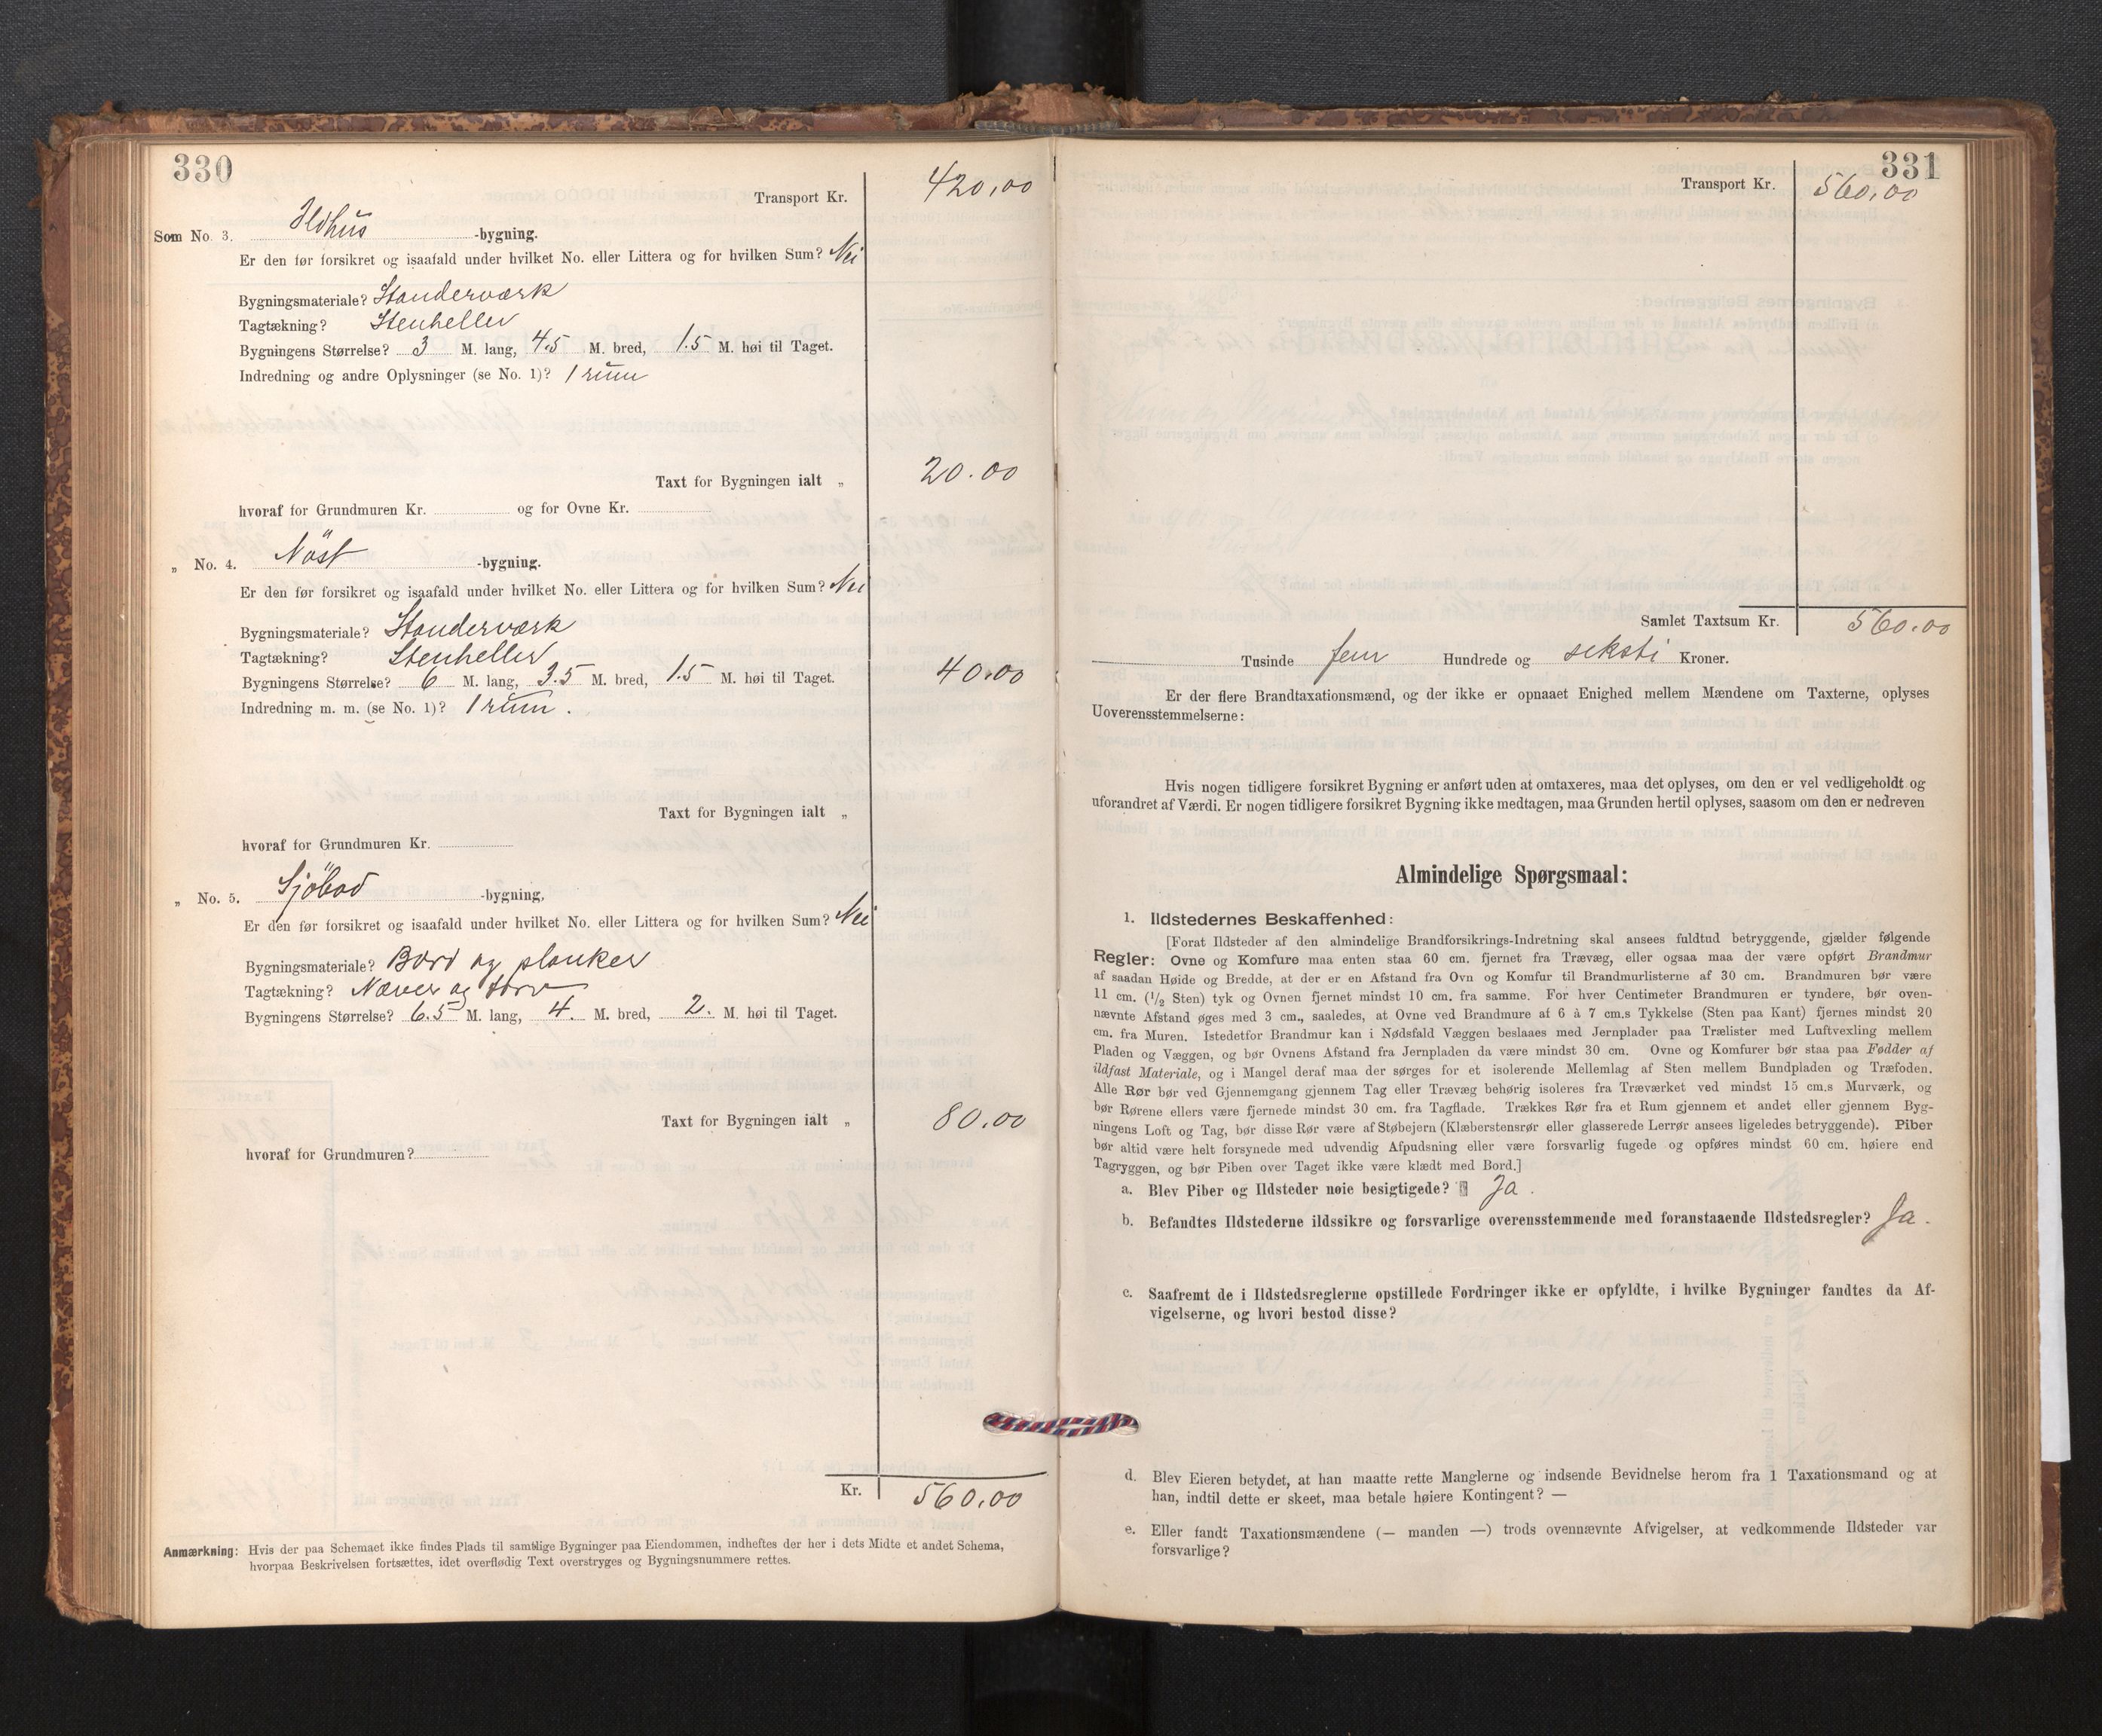 330
Transport Kr. 420,00
Som No. 3. Ildhus -bygning.
Er den før forsikret og isaafald under hvilket No. eller Littera og for hvilken Sum? Nei
Bygningsmateriale? Standerværk
Tagtækning? Stenheller
Bygningens Størrelse? 3 M. lang, 4.5 M. bred, 1.5 M. høi til Taget.
Indredning og andre Oplysninger (se No. 1)? 1 rum
Taxt for Bygningen ialt „ 20.00
hvoraf for Grundmuren Kr. og for Ovne Kr.
„ No. 4. Nöst -bygning.
Er den før forsikret og isaafald under hvilket No. eller Littera og for hvilken Sum? Nei
Bygningsmateriale? Standerværk
Tagtækning? Stenheller
Bygningens Størrelse? 6 M. lang, 3.5 M. bred, 1.5 M. høi til Taget. 40.00
Indredning m. m. (se No. 1)? 1 rum.
Taxt for Bygningen ialt „
hvoraf for Grundmuren Kr.
„ No. 5. Sjöbod -bygning,
Er den før forsikret og isaafald under hvilket No. eller Littera og for hvilken Sum? Nei
Bygningsmateriale? Bord og planker
Tagtækning? Næver og torv
Bygningens Størrelse? 6.5 M. lang, 4. M. bred, 2. M. høi til Taget.
Taxt for Bygningen ialt „ 80.00
hvoraf for Grundmuren?
Kr. 560.00
Anmærkning: Hvis der paa Schemaet ikke findes Plads til samtlige Bygninger paa Eiendommen, indheftes der her i dets Midte et andet Schema,
hvorpaa Beskrivelsen fortsættes, idet overflødig Text overstryges og Bygningsnummere rettes.
331
Transport Kr. 560,00
Samlet Taxtsum Kr. 560.00
Tusinde fem Hundrede og seksti Kroner.
Er der flere Brandtaxationsmænd, og der ikke er opnaaet Enighed mellem Mændene om Taxterne, oplyses
Uoverensstemmelserne:
Hvis nogen tidligere forsikret Bygning er anført uden at omtaxeres, maa det oplyses, om den er vel vedligeholdt og
uforandret af Værdi. Er nogen tidligere forsikret Bygning ikke medtagen, maa Grunden hertil oplyses, saasom om den er nedreven
Almindelige Spørgsmaal:
1. Ildstedernes Beskaffenhed:
[Forat Ildsteder af den almindelige Brandforsikrings-Indretning skal ansees fuldtud betryggende, gjælder følgende
Regler: Ovne og Komfure maa enten staa 60 cm. fjernet fra Trævæg, eller ogsaa maa der være opført Brandmur
af saadan Høide og Bredde, at der er en Afstand fra Ovn og Komfur til Brandmurlisterne af 30 cm. Brandmuren bør være
11 cm. (1/2 Sten) tyk og Ovnen fjernet mindst 10 cm. fra samme. For hver Centimeter Brandmuren er tyndere, bør oven-
nævnte Afstand øges med 3 cm., saaledes, at Ovne ved Brandmure af 6 à 7 cm.s Tykkelse (Sten paa Kant) fjernes mindst 20
cm. fra Muren. Istedetfor Brandmur kan i Nødsfald Væggen beslaaes med Jernplader paa Trælister med Luftvexling mellem
Pladen og Væggen, og bør Ovnens Afstand fra Jernpladen da være mindst 30 cm. Ovne og Komfurer bør staa paa Fødder af
ildfast Materiale, og i Mangel deraf maa der sørges for et isolerende Mellemlag af Sten mellem Bundpladen og Træfoden.
Alle Rør bør ved Gjennemgang gjennem Tag eller Trævæg behørig isoleres fra Træværket ved mindst 15 cm.s Murværk, og
bør Rørene ellers være fjernede mindst 30 cm. fra Tagflade. Trækkes Rør fra et Rum gjennem et andet eller gjennem Byg-
ningens Loft og Tag, bør disse Rør være af Støbejern (Klæberstensrør eller glasserede Lerrør ansees ligeledes betryggende). Piber
bør altid være helt forsynede med udvendig Afpudsning eller være forsvarlig fugede og opføres mindst 60 cm. høiere end
Tagryggen, og bør Piben over Taget ikke være klædt med Bord.]
a. Blev Piber og Ildsteder nøie besigtigede? Ja.
b. Befandtes Ildstederne ildssikre og forsvarlige overensstemmende med foranstaaende Ildstedsregler? Ja.
c. Saafremt de i Ildstedsreglerne opstillede Fordringer ikke er opfyldte, i hvilke Bygninger fandtes da Af-
vigelserne, og hvori bestod disse?
d. Blev Eieren betydet, at han maatte rette Manglerne og indsende Bevidnelse herom fra 1 Taxationsmand og at
han, indtil dette er skeet, maa betale høiere Kontingent? —
e. Eller fandt Taxationsmændene (— manden —) trods ovennævnte Afvigelser, at vedkommende Ildsteder var
forsvarlige?